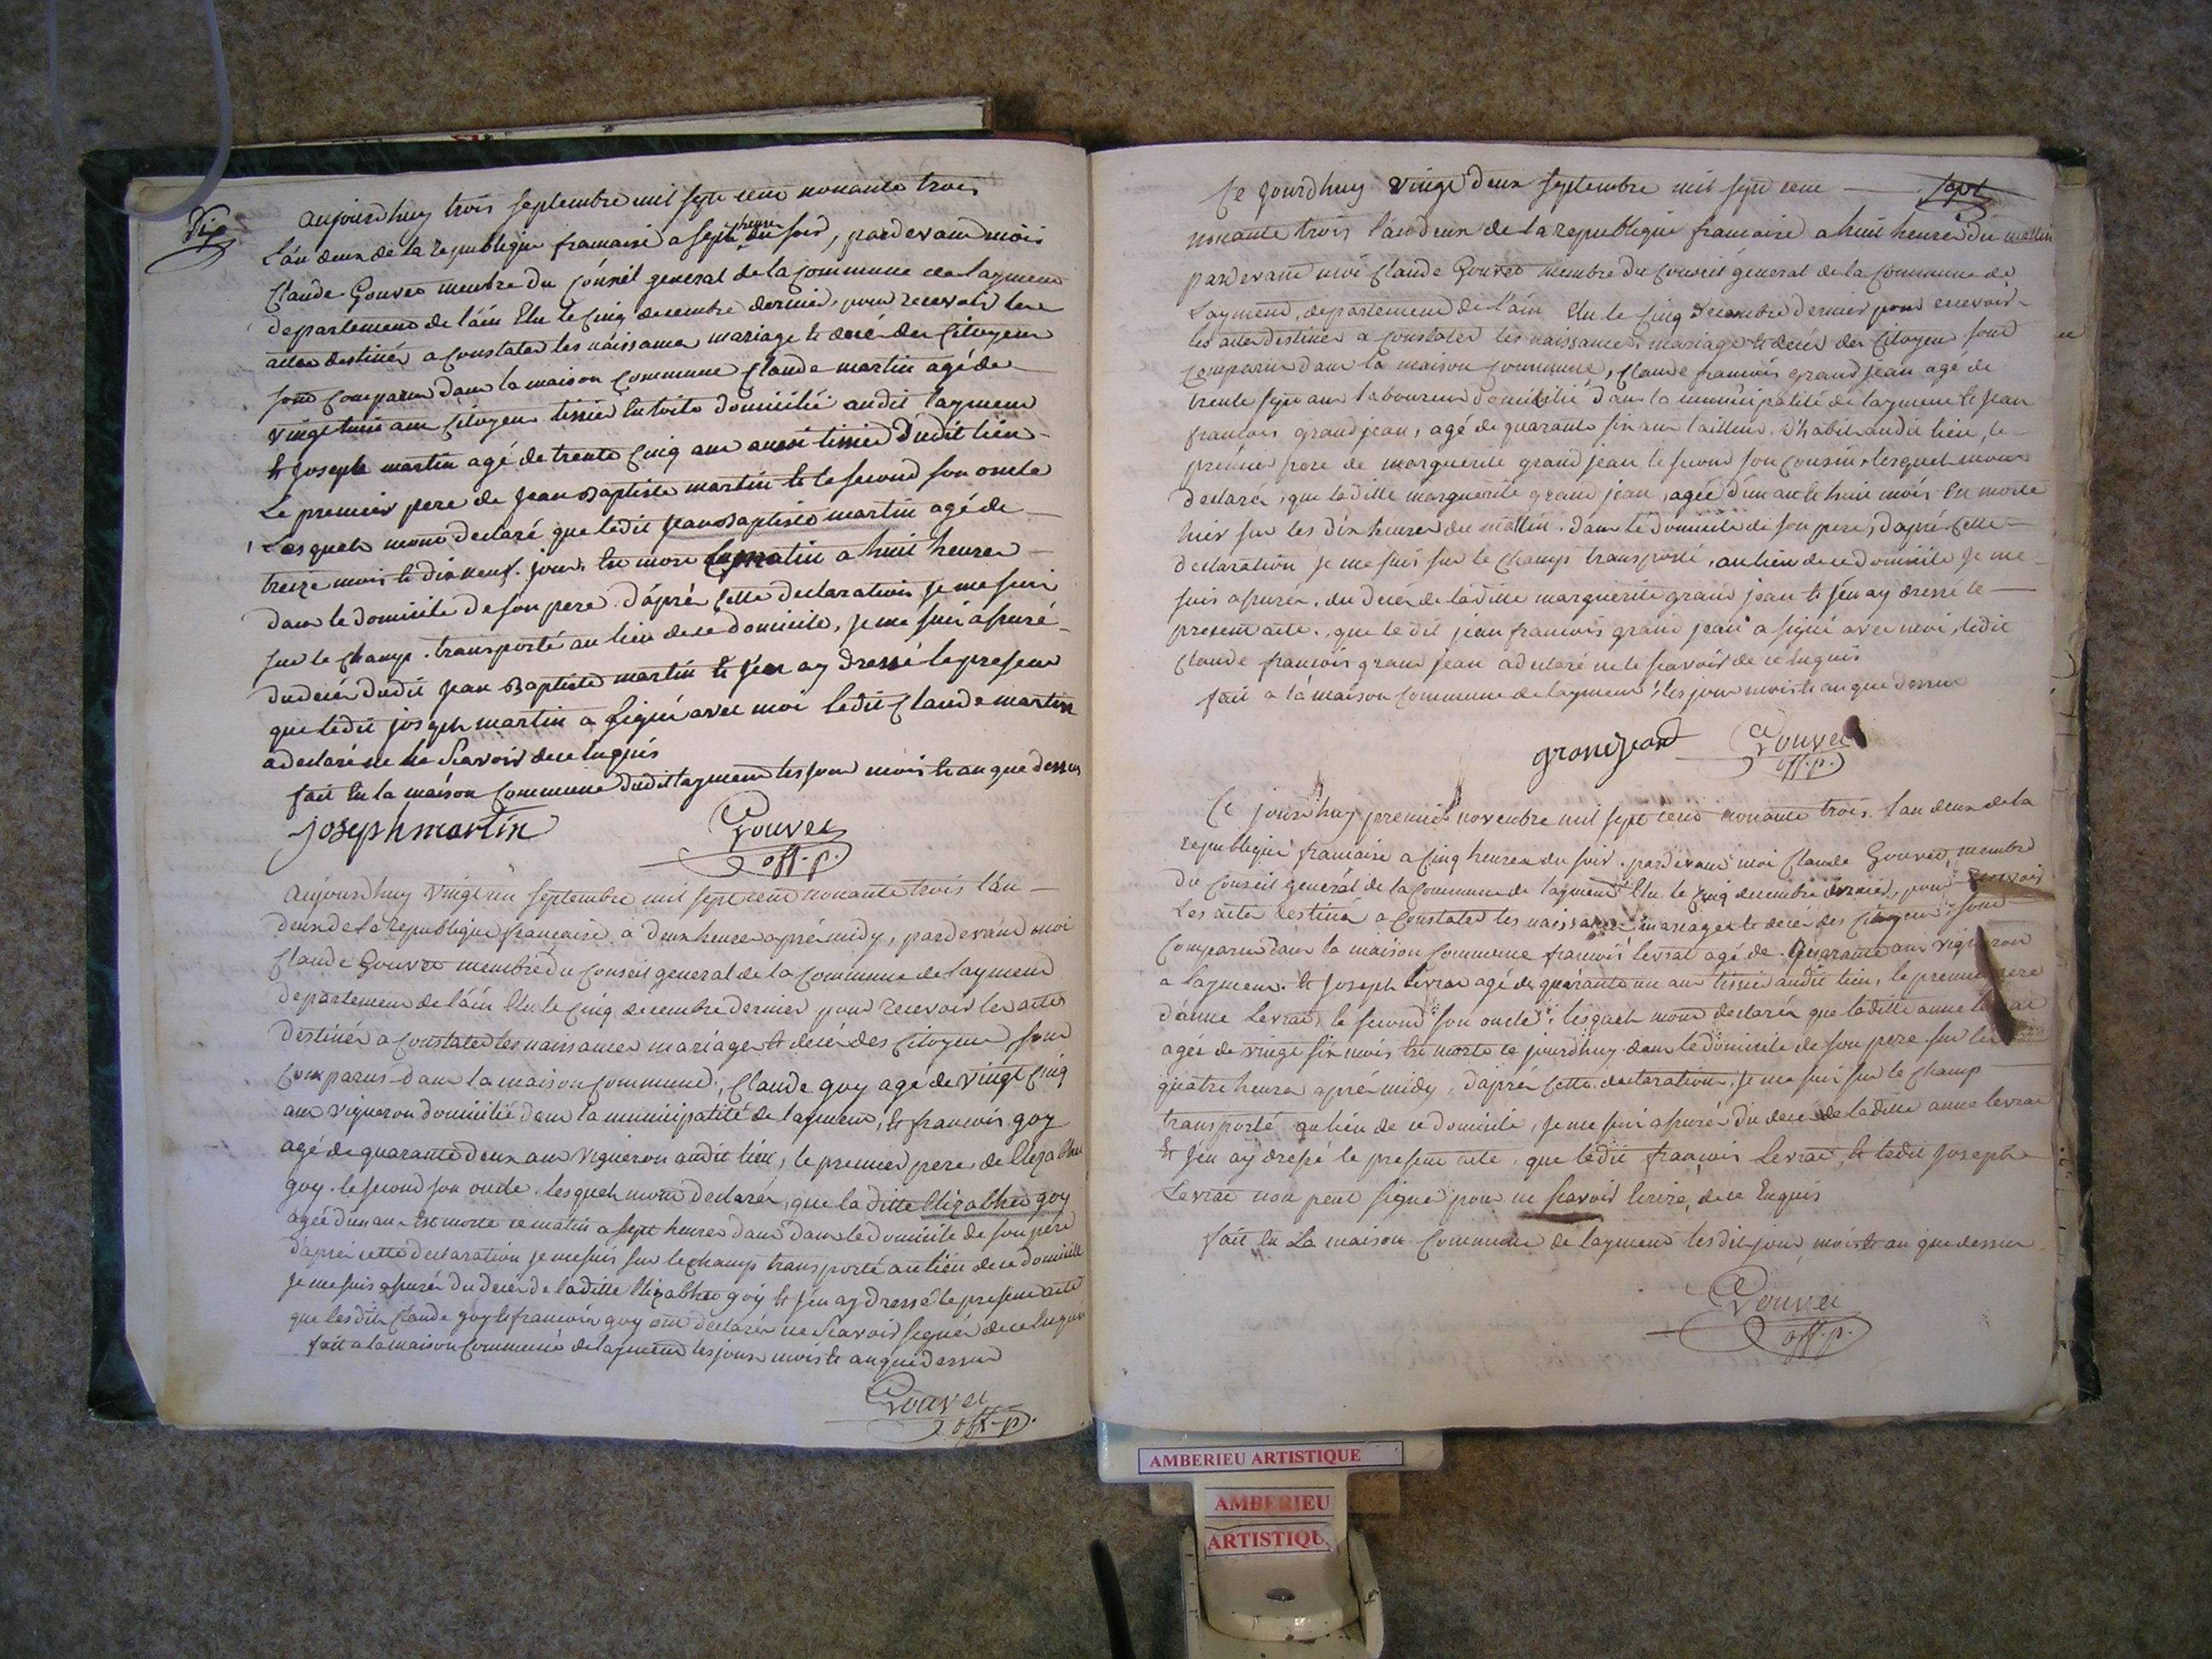 Six
aujourdhuy trois septembre mil sept cent nonante trois
l'an deux de la republique francaise a sept heures du soir, pardevant moi
Claude Gouvet membre du conseil general de la commune de Laymend
departement de l'ain Elu le cinq decembre dernier, pour recevoir les
actes destinés a constater les naissances mariage et decés des citoyens
sont comparus dans la maison commune Claude martin agé de
vingt huit ans citoyen tissier en toile domicilié audit Laymend
et Joseph martin agé de trente cinq ans aussi tissier dudit lieu
Le premier pere de Jean Baptiste martin et le second son oncle
Lesquels mont declaré que ledit Jean Baptiste martin agé de
treize mois et dix neuf jours est mort ce matin a huit heures
dans le domicile de son pere d'après cette declaration je me suis
sur le champs transporté au lieu de ce domicile, je me suis assuré
du decés dudit Jean Baptiste martin et j'en ay dressé le present
que ledit joseph martin a signé avec moi ledit Claude martin
a declaré ne le scavoir de ce enquis
fait en la maison commune dudit Laymend les jour mois et an que dessus
joseph martin Gouvet
off. p.
aujourdhuy vingt un septembre mil sept cent nonante trois l'an
deux de la republique francaise a deux heures aprés midy, pardevant moi
Claude Gouvet membre du conseil general de la commune de Laymend
departement de l'ain Elu le cinq decembre dernier pour recevoir les actes
destinés a constater les naissances mariages et decés des citoyens sont
comparus dans la maison commune, Claude goy agé de vingt cinq
ans vigneron domicilié dans la municipalité de Laymend, et francois goy
agé de quarante deux ans vigneron audit lieu, le premier pere de Elizabhet
goy le second son oncle lesquels mont declarés, que la ditte Elizabhet goy
agée d'un an est morte ce matin a sept heures dans dans le domicile de son père
d'aprés cette declaration je me suis sur le champs transporté au lieu de ce domicille
je me suis assurés du decés de la ditte Elizabhet goy et j'en ay dressé le present acte
que lesdits Claude goy et francois goy ont declarés ne scavoir signer de ce enquis
fait a la maison commune de Laymend les jour mois et an que dessus
Gouvet
off. p.
Sept
Ce jourdhuy vingt deux septembre mil sept cent
nonante trois l'an deux de la republique francaise a huit heures du mattin
pardevant moi Claude Gouvet membre du conseil général de la commune de
Laymend, departement de l'ain Elu le cinq decembre dernier pour recevoir
les actes destinés a constater les naissances, mariage et decés des citoyens sont
comparus dans la maison commune, Claude francois grand jean agé de
trente sept ans laboureur domicilié dans la municipalité de Laymend et jean
francois grand jean, agé de quarante six ans tailleur d'habits audit lieu, le
premier pere de marguerite grand jean le second son cousin lesquels mont
declarés, que la ditte marguerite grand jean, agée d'un an et huit mois est morte
hier sur les dix heures du mattin dans le domicile de son pere, d'aprés cette
declaration je me suis sur le champs transporté, au lieu de ce domicile je me
suis assurés, du decés de la ditte marguerite grand jean et j'en ay dressé le
present acte, que le dit jean francois grand jean a signé avec moi, ledit
Claude francois grand jean a declaré ne le scavoir de ce enquis
fait a la maison commune de Laymend les jour mois et an que dessus
grand jean Gouvet
off. p.
Ce jourdhuy premier novembre mil sept cend nonante trois l'an deux de la
republique francaise a cinq heures du soir pardevant moi Claude Gouvet, membre
du conseil generál de la commune de Laymend Elu le cinq decembre dernier, pour recevoir
Les actes destinés a constater les naissances mariages et decés des citoyens sont
comparus dans la maison commune francois levrat agé de quarante ans vigneron
a Laymend et Joseph Levrat agé de quarante un ans tissier audit lieu, le premier pere
d'anne Levrat le second son oncle; lesquels mont declarés que laditte anne levrat
agée de vingt six mois est morte ce jourdhuy dans le domicile de son pere sur les
quatre heures aprés midy, d'aprés cette declaration, je me suis sur le champ
transporté au lieu de ce domicile, je me suis assurés du decé de laditte anne levrat
et j'en ay dressé le present acte, que ledit francois Levrat, et ledit joseph
Levrat non peut signé pour ne scavoir Ecrire, de ce Enquis
fait en La maison commune de Laymend lesdits jour mois et an que dessus
Gouvet
off. p.
AMBERIEU ARTISTIQUE
AMBERIEU
ARTISTIQU